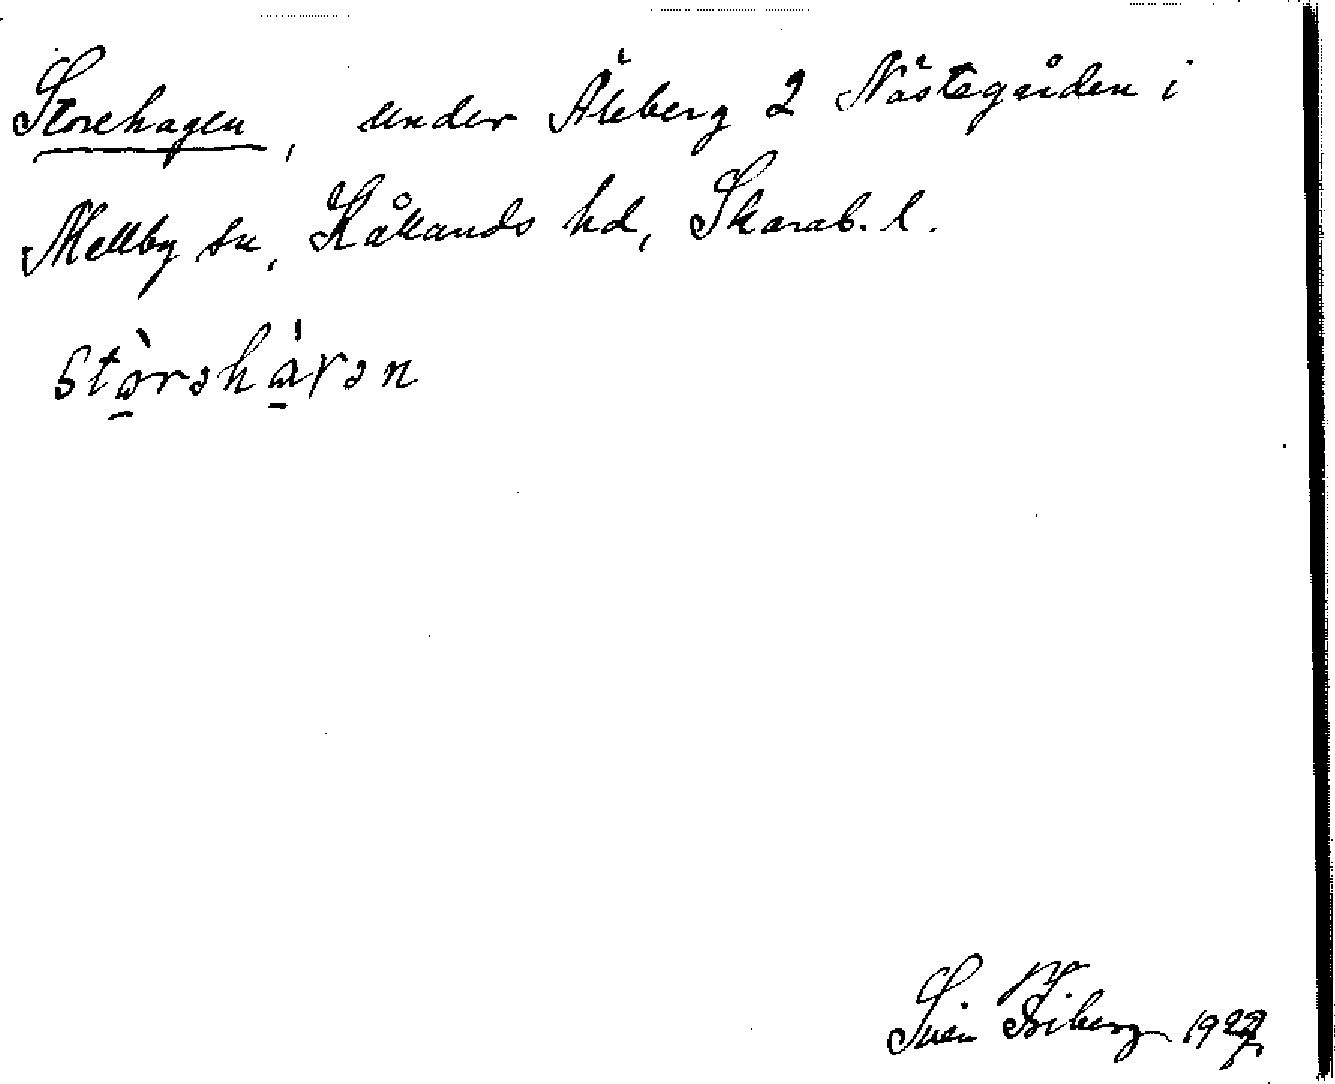 Storehagen, under Åleberg 2 Nästegården i
Mellby sn, Kållands hd, Skarab. l.
stòrəhàγən
Sven Friberg